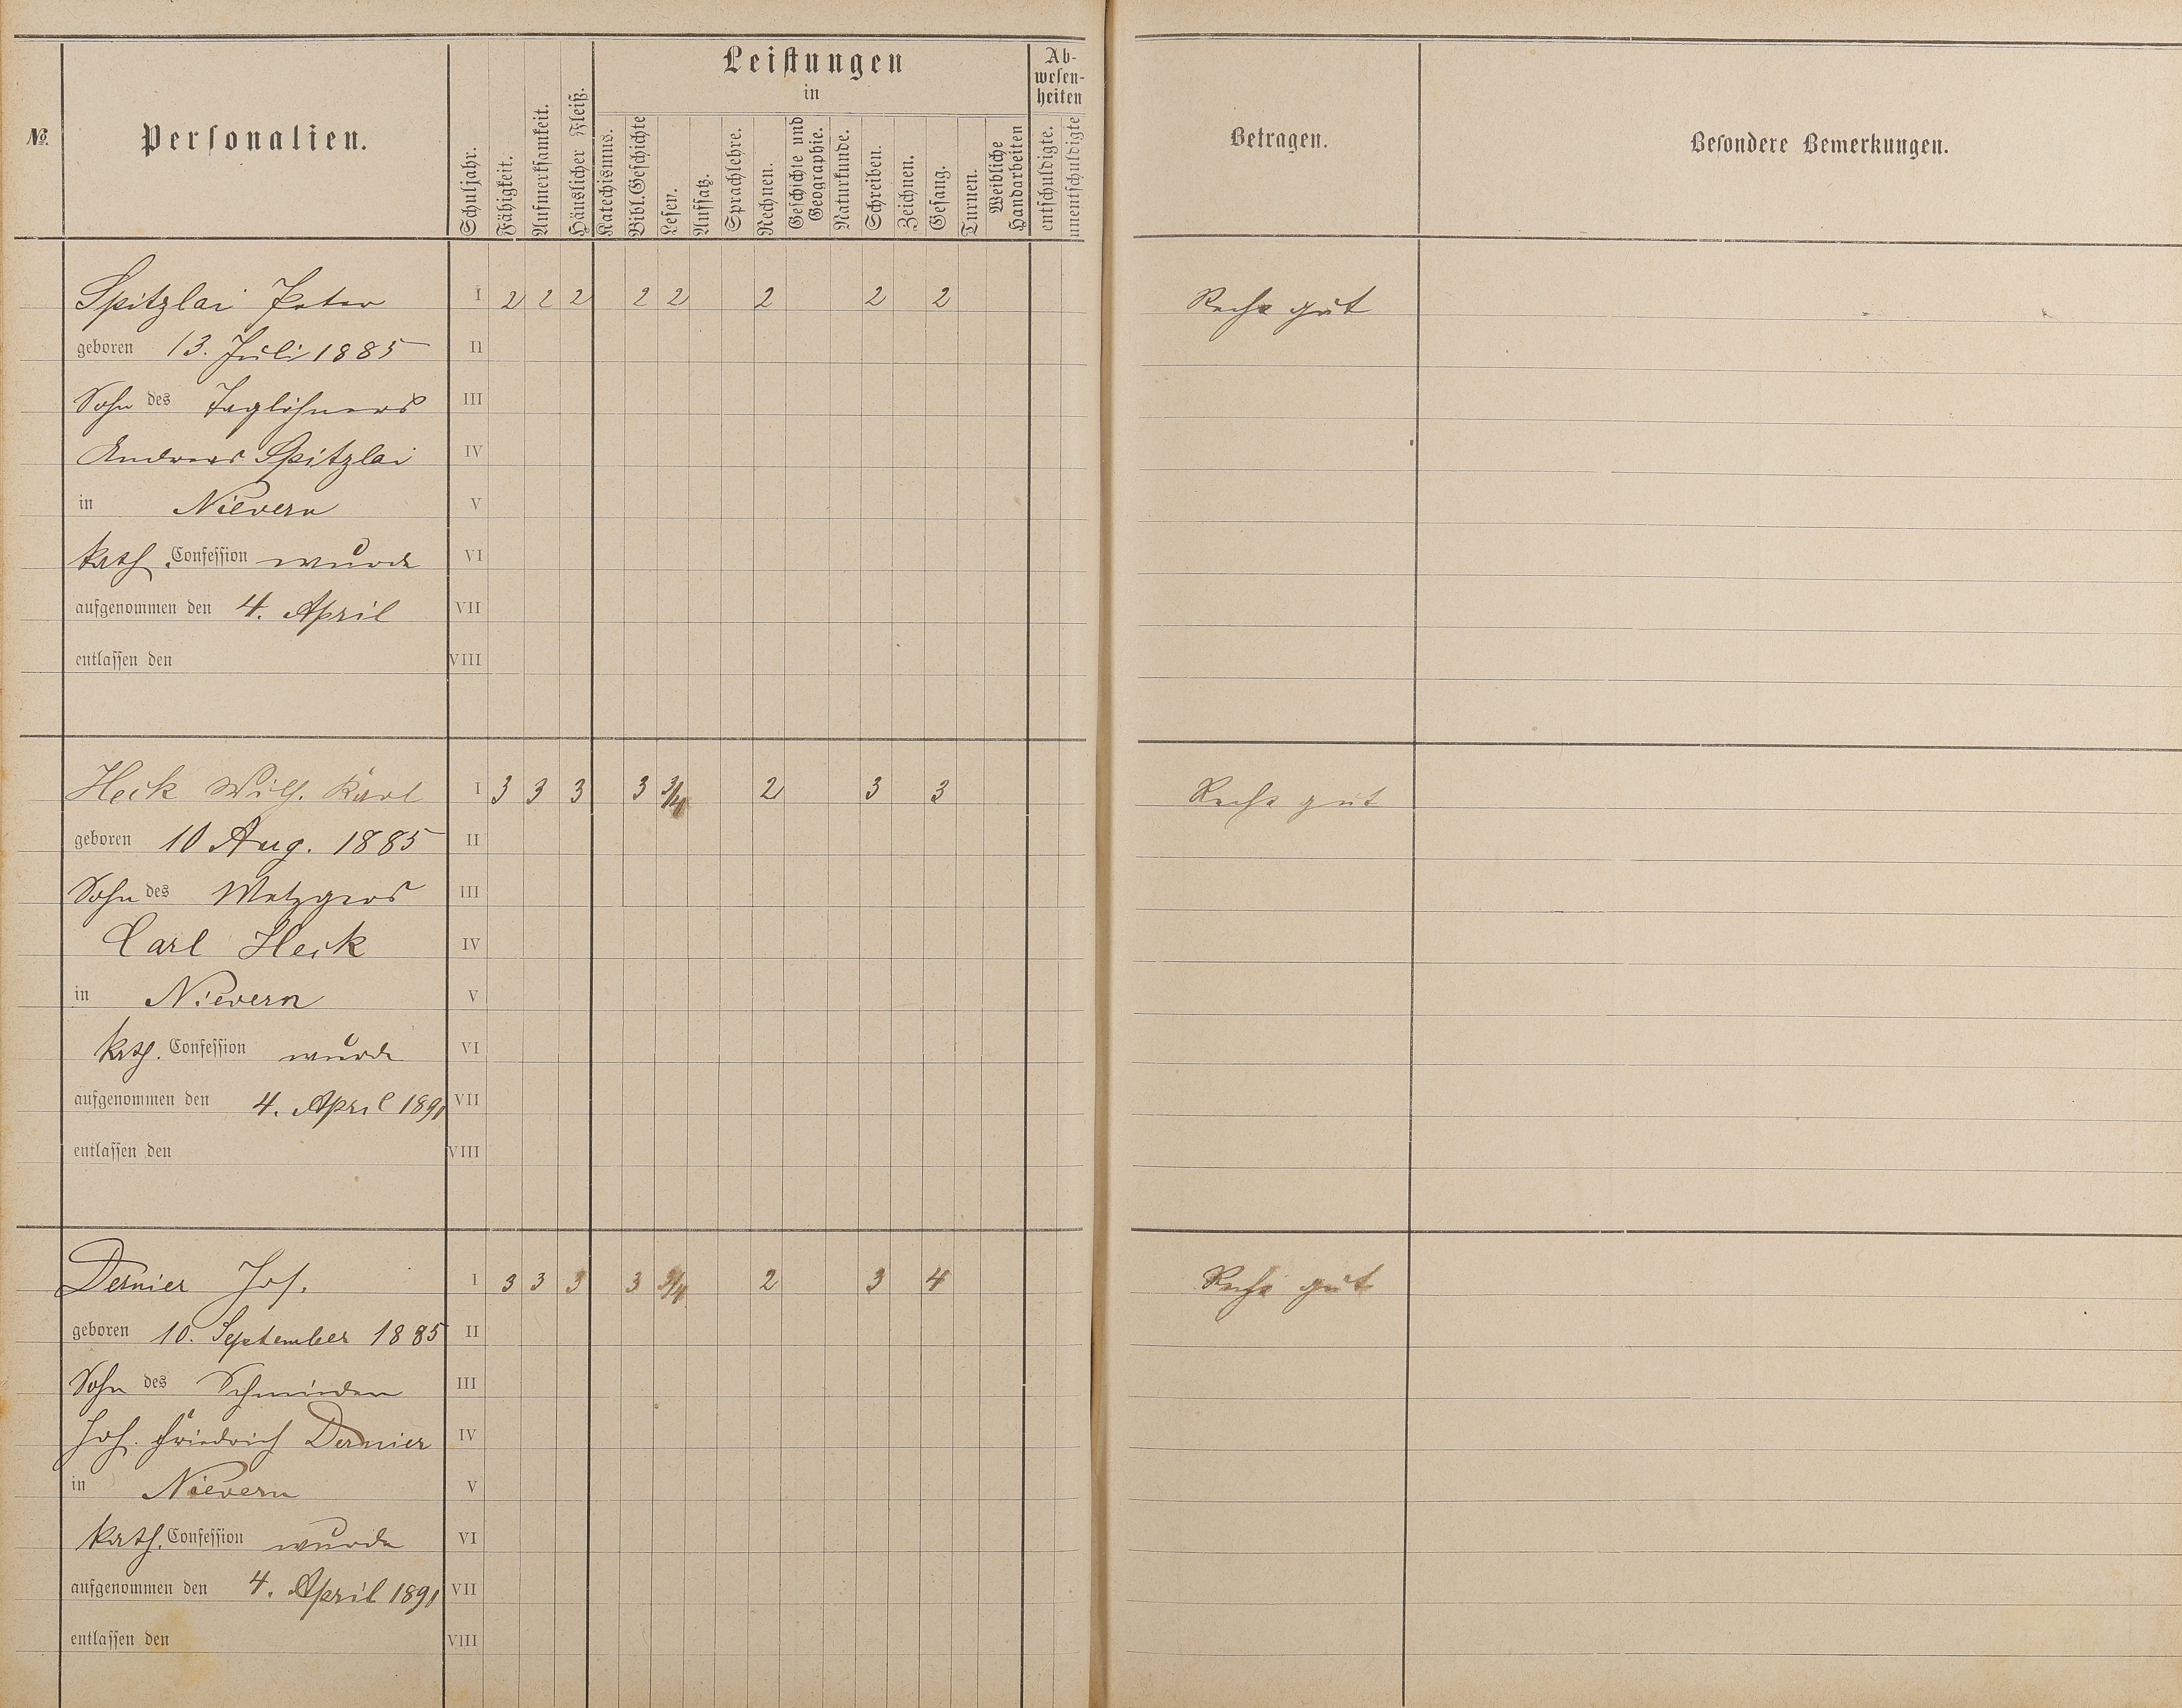 Leistungen
in
Ab-
wesen-
heiten
№.
Personalien.
Schuljahr.
Fähigkeit.
Aufmerksamkeit.
Häuslicher Fleiß.
Katechismus.
Bibl. Geschichte
Lesen.
Aufsatz.
Sprachlehre.
Rechnen.
Geschichte und
Geographie.
Naturkunde.
Schreiben.
Zeichnen.
Gesang.
Turnen.
Weibliche
Handarbeiten
entschuldigte.
unentschuldigte
Betragen.
Besondere Bemerkungen.
Spitzlai Peter I 2 2 2 2 2 2 2 2 Recht gut
geboren 13. Juli 1885 II
Sohn des Taglöhners III
Andreas Spitzlai IV
in Nievern V
kath. Confession wurde VI
aufgenommen den 4. April VII
entlassen den VIII
Heck Wilh. Karl I 3 3 3 3 3/4 2 3 3 Recht gut
geboren 10 Aug. 1885 II
Sohn des Metzgers III
Carl Heck IV
in Nievern V
kath. Confession wurde VI
aufgenommen den 4. April 1891 VII
entlassen den VIII
Dernier Joh. I 3 3 3 3 3/4 2 3 4 Recht gut
geboren 10. September 1885 II
Sohn des Schmieden III
Joh. Friedrich Dernier IV
in Nievern V
kath. Confession wurde VI
aufgenommen den 4. April 1891 VII
entlassen den VIII